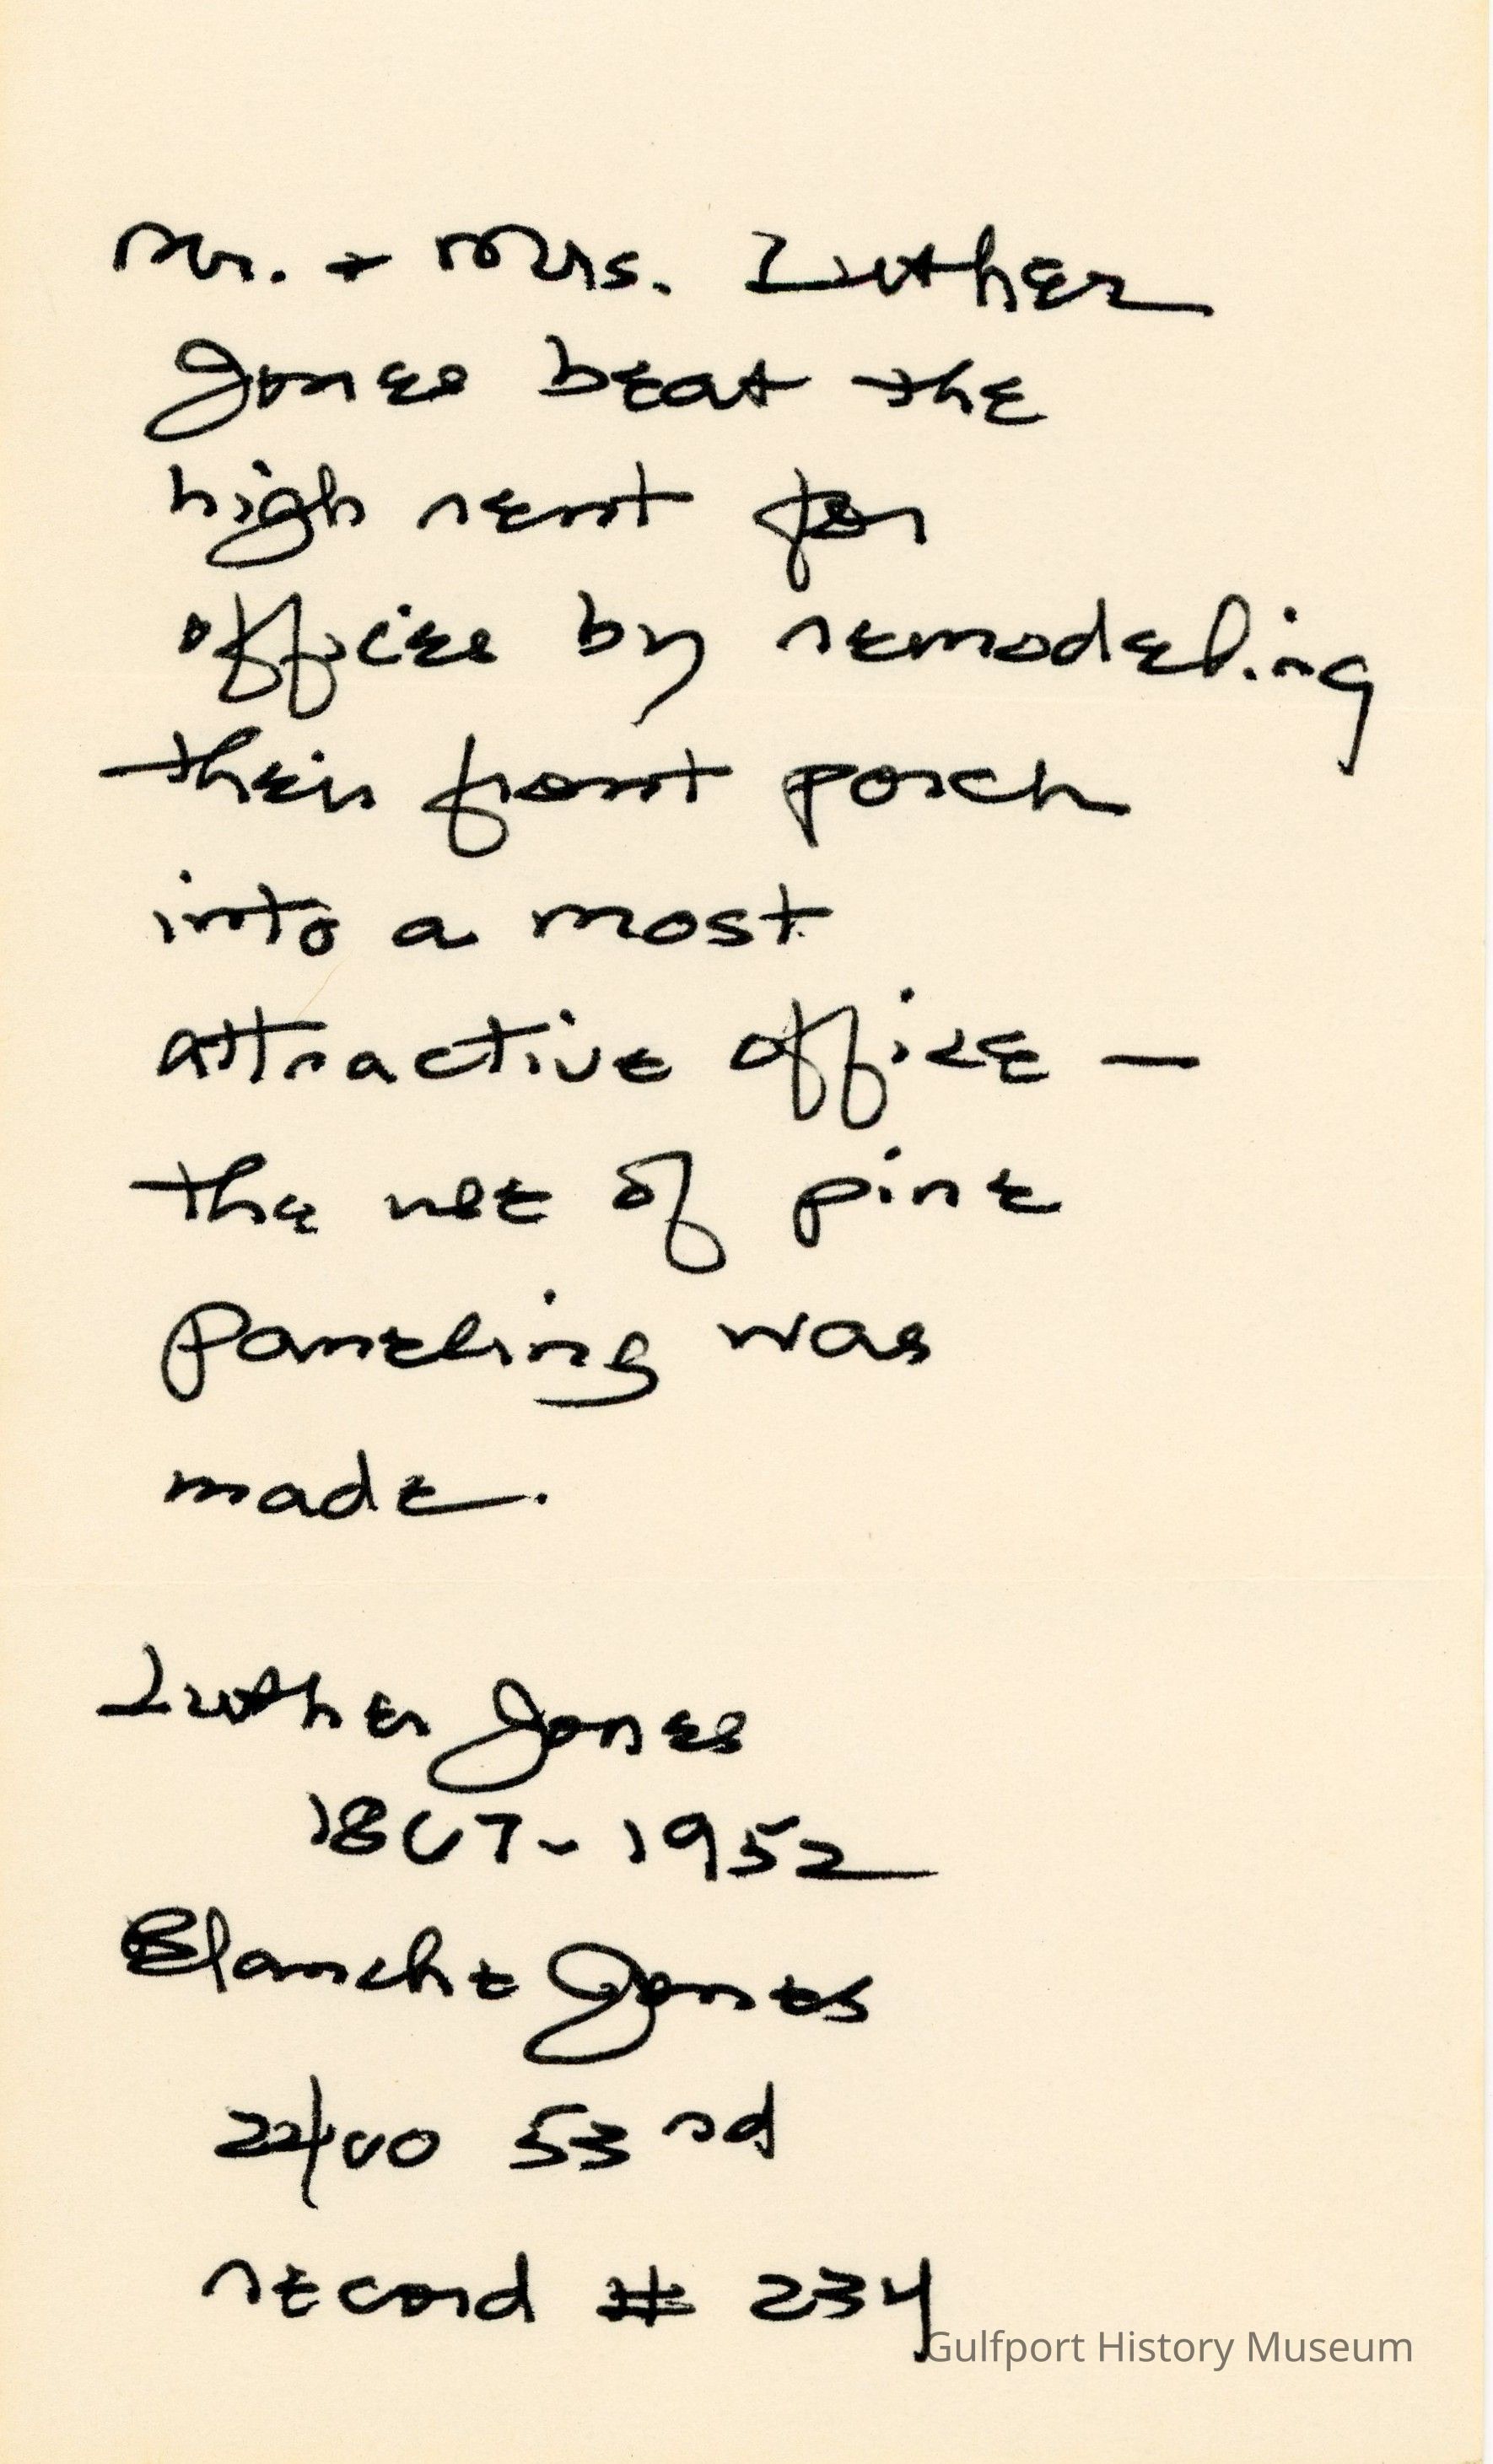 Mr. + Mrs. Luther
Jones beat the
high rent for
offices by remodeling
their front porch
into a most
attractive office —
the use of pine
paneling was
made.
Luther Jones
1867-1952
Blanche Jones
53rd
record # 234
Gulfport History Museum